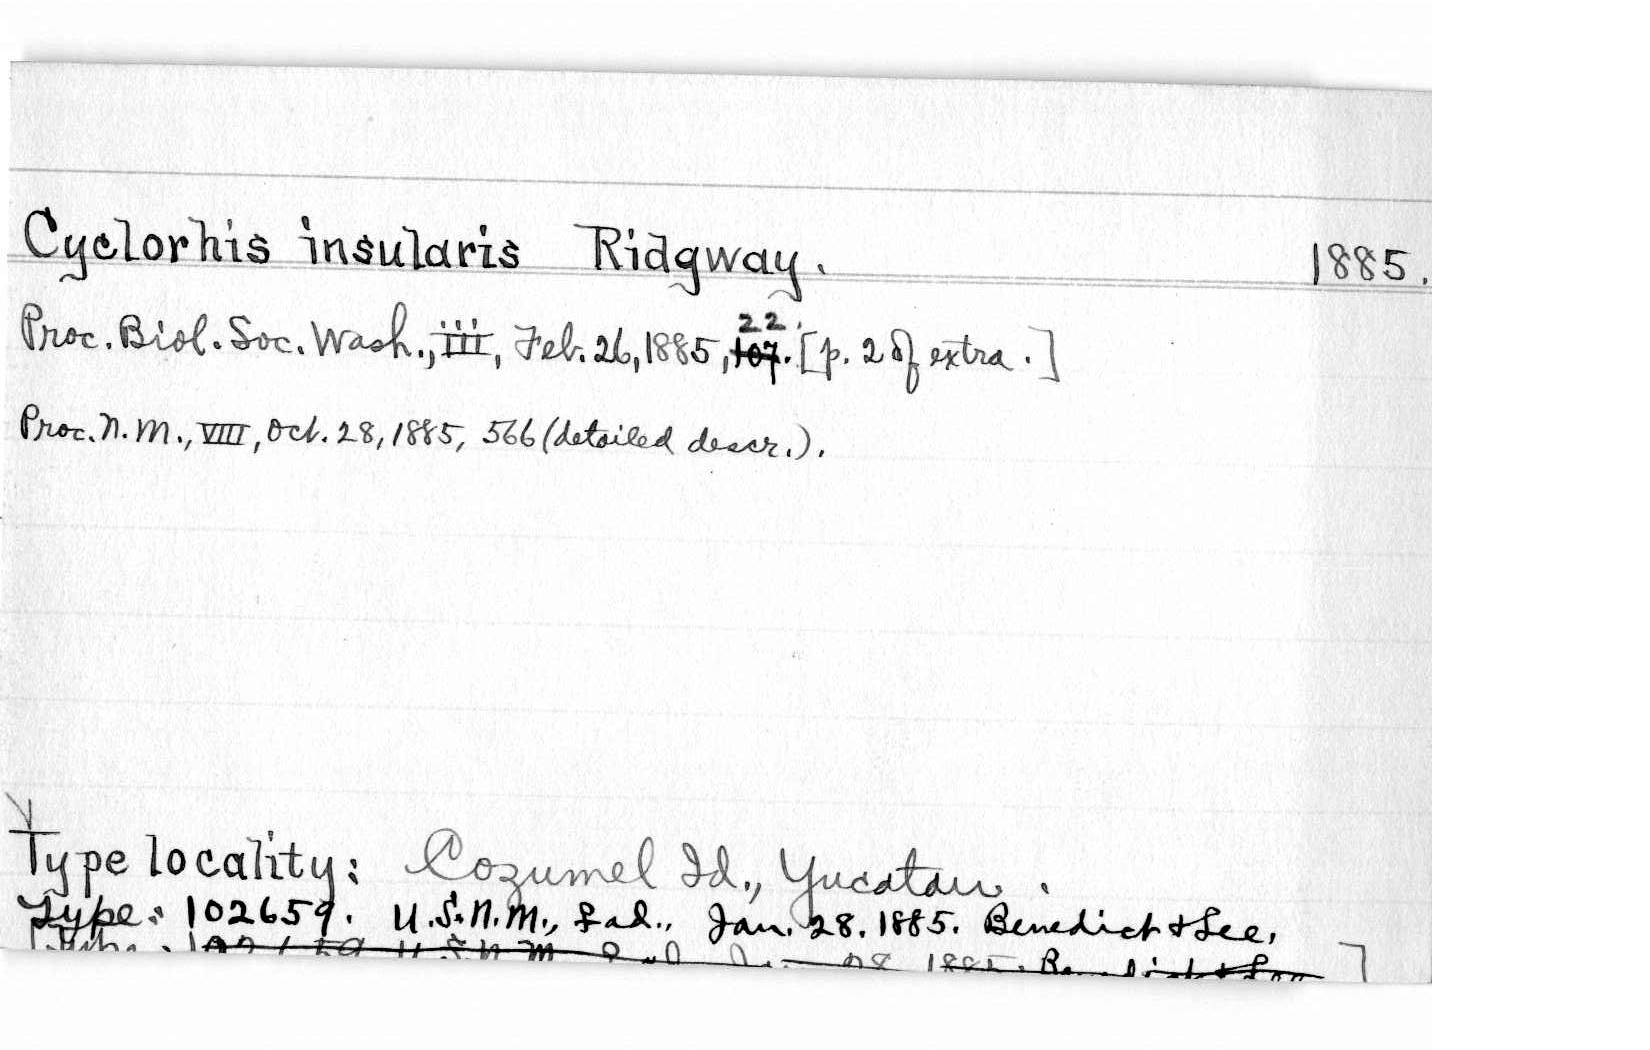 Cyclorhis insularis Ridgway. 1885.
Proc. Biol. Soc. Wash., iii, Feb. 26, 1885, 107. 22. [p. 2 of extra.]
Proc. N. M., VIII, Oct. 28, 1885, 566 (detailed descr.).
Type locality: Cozumel Id., Yucatan.
Type: 102659. U.S.N.M., ♀ ad., Jan. 28. 1885. Benedict & Lee.
Type: 102659 U.S.N.M. ad. 28 1885. Benedict & Lee ]